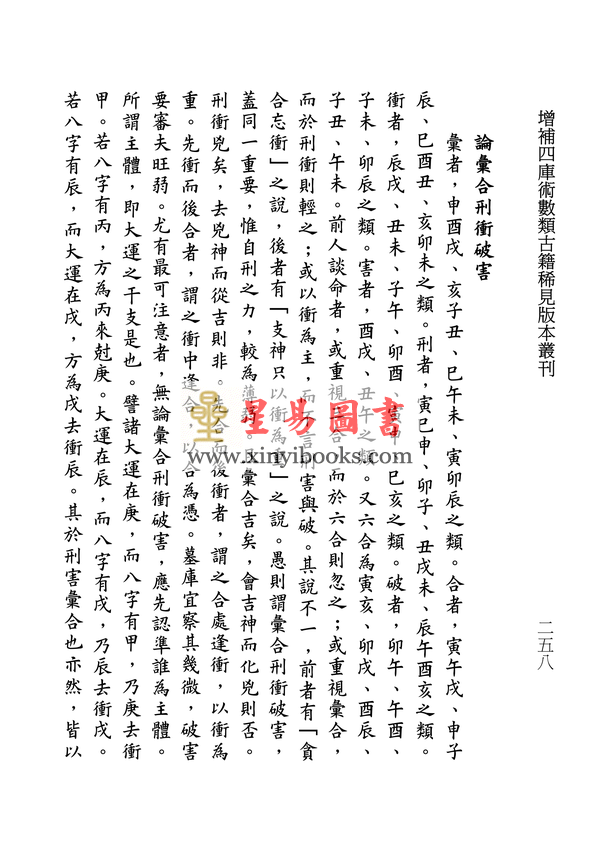 增補四庫術數類古籍稀見版本叢刊
二五八
論彙合刑衝破害
彙者，申酉戌、亥子丑、巳午未、寅卯辰之類。合者，寅午戌、申子
辰、巳酉丑、亥卯未之類。刑者，寅巳申、卯子、丑戌未、辰午酉亥之類。
衝者，辰戌、丑未、子午、卯酉、寅申、巳亥之類。破者，卯午、午酉、
子未、卯辰之類。害者，酉戌、丑午之類。又六合為寅亥、卯戌、酉辰、
子丑、午未。前人談命者，或重視三合，而於六合則忽之；或重視彙合，
而於刑衝則輕之；或以衝為主，而不言刑害與破。其說不一，前者有「貪
合忘衝」之說，後者有「支神只以衝為重」之說。愚則謂彙合刑衝破害，
蓋同一重要，惟自刑之力，較為薄弱。且彙合吉矣，會吉神而化兇則否。
刑衝兇矣，去兇神而從吉則非。先合而後衝者，謂之合處逢衝，以衝為
重。先衝而後合者，謂之衝中逢合，以合為憑。墓庫宜察其幾微，破害
要審夫旺弱。尤有最可注意者，無論彙合刑衝破害，應先認準誰為主體。
所謂主體，即大運之干支是也。譬諸大運在庚，而八字有甲，乃庚去衝
甲。若八字有丙，方為丙來尅庚。大運在辰，而八字有戌，乃辰去衝戌。
若八字有辰，而大運在戌，方為戌去衝辰。其於刑害彙合也亦然，皆以
星易圖書
www.xinyibooks.com